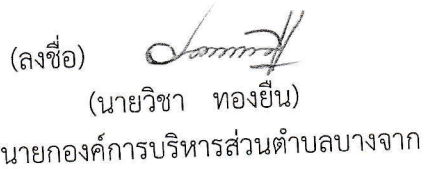 (ลงชื่อ)
(นายวิชา ทองยืน)
นายกองค์การบริหารส่วนตำบลบางจาก